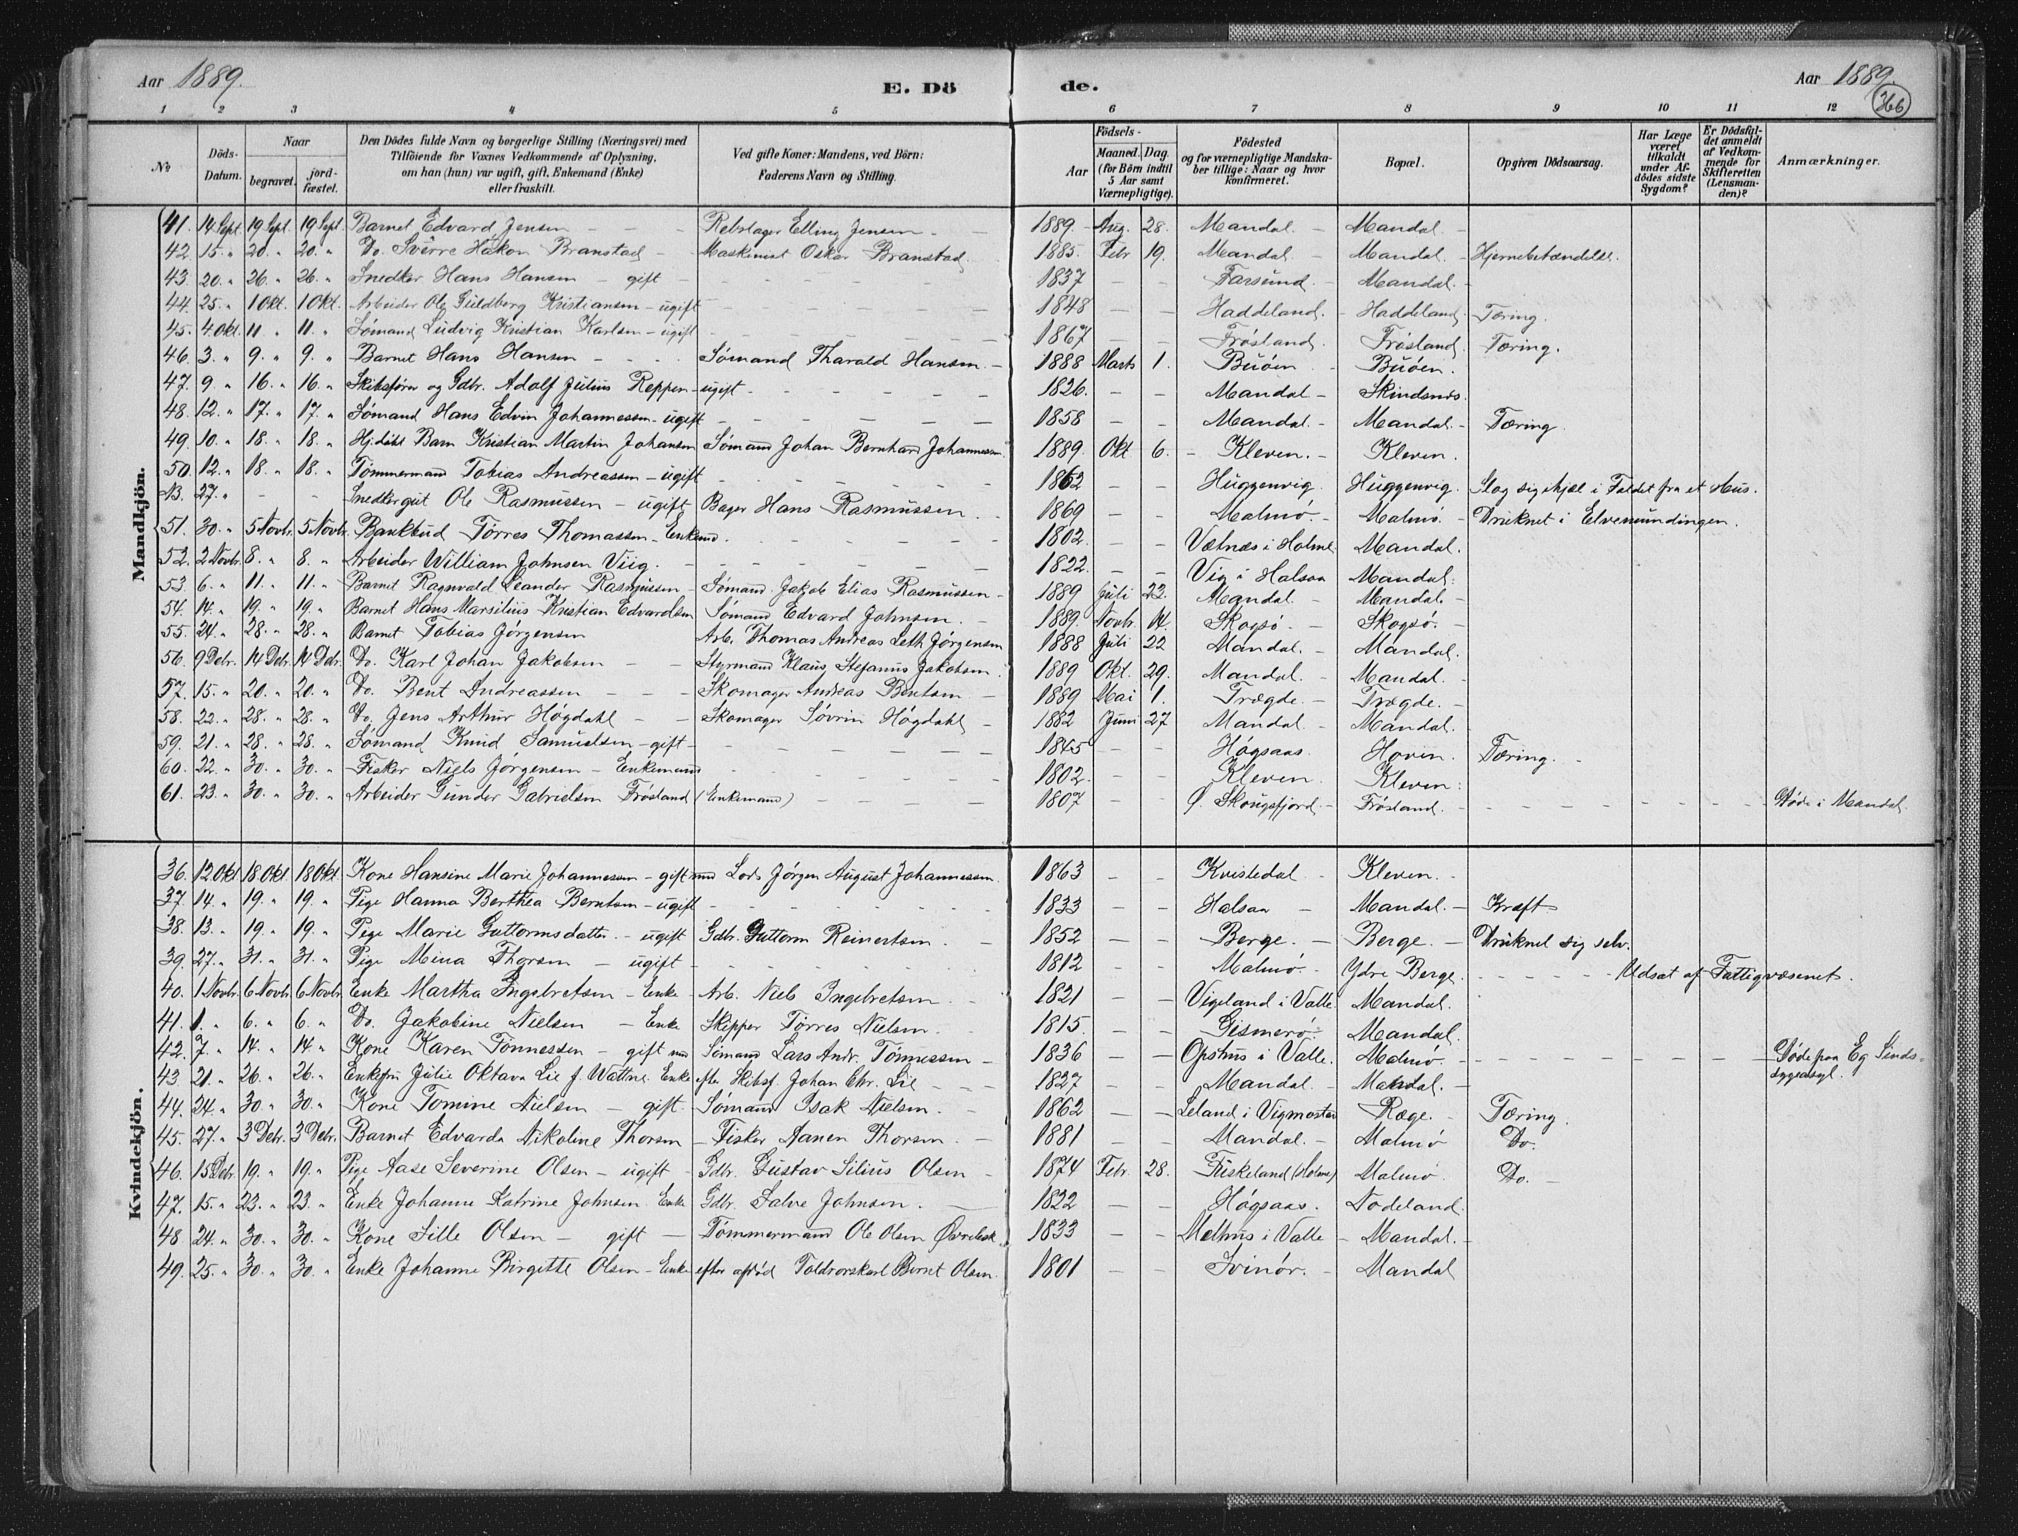 Aar 1889. E. Dö de. Aar 1889.
366
1 2 3 4 5 6 7 8 9 10 11 12
№
Döds-Datum.
Naar
begravet.
jordfæstet.
Den Dödes fulde Navn og borgerlige Stilling (Næringsvei) med
Tilföiende for Voxnes Vedkommende af Oplysning,
om han (hun) var ugift, gift, Enkemand (Enke)
eller fraskilt.
Ved gifte Koner: Mandens, ved Börn:
Faderens Navn og Stilling.
Födsels-
Aar
Maaned. Dag.
(for Börn indtil
5 Aar samt
Værnepligtige).
Födested
og for værnepligtige Mandskaber tillige: Naar og hvor
konfirmeret.
Bopæl.
Opgiven Dödsaarsag.
Har Læge
været
tilkaldt
under Afdödes sidste
Sygdom?
Er Dödsfaldet anmeldt
af Vedkommende for
Skifteretten
(Lensmanden)?
Anmærkninger.
Mandkjön.
41. 14 Sept 19 Sept. 19 Sept. Barnet Edvard Jensen - - Rebslager Elling Jensen. - 1889 Aug. 28. Mandal - Mandal -
42. 15. " 20. " 20. " Do. Sverre Håkon Branstad - Maskinist Oskar Branstad. 1885. Febr 19. Mandal - Mandal - Hjernebetændelse.
43. 20. " 26. " 26. " Snedker Hans Hansen - gift - 1837 - - Farsund - Mandal -
44. 25. " 1 Okt. 1 Okt. Arbeider Ole Guldberg Kristiansen - ugift 1848 - - Haddeland. - Haddeland. Tæring.
45. 4. Okt. 11 " 11. " Sømand Ludvig Kristian Karlsen - ugift 1867 - Frøsland. Frøsland. Tæring.
46. 3. " 9. " 9. " Barnet Hans Hansen - - Sømand Tharald Hansen. - 1888 Marts 1. Buøen - Buøen.
47. 9. " 16. " 16. " Skibsfører og Gdbr. Adolf Julius Reppen - ugift. - 1826. - - Mandal - Skindsnes.
48. 12. " 17. " 17. " Sømand Hans Edvin Johannessen - ugift 1858 - - Mandal. - Mandal. - Tæring.
49. 10. " 18. " 18. " Hj.døbt Barn Kristian Martin Johansen Sømand Johan Bernhard Johannessen. 1889. Okt 6. - Kleven. - Kleven.
50. 12. " 18. " 18. " Tømmermand Tobias Andreassen - ugift 1862 - - Huggenvig. Huggenvig. Slog sig ihjæl i Faldet fra et Hus.
NB. 27. " - - Snedkergut Ole Rasmussen - ugift Bager Hans Rasmussen 1869 - - Malmø. - Malmø. - Druknet i Elvemundingen.
51. 30. " 5 Novbr. 5 Novbr. Bankbud Tørres Thomassen - Enkemd. 1802. - - Vætnæs i Holme Mandal.
52. 2 Novbr. 8. " 8. " Arbeider William Johnsen Viig. - 1822. - - Vig i Halsaa Mandal.
53. 6. " 11. " 11. " Barnet Ragnvald Leander Rasmussen - Sømand Jakob Elias Rasmussen - 1889 Juli 22. Mandal. - Mandal.
54. 14. " 19. " 19. " Barnet Hans Marsilius Kristian Edvardsen Sømand Edvard Johnsen. - 1889. Novbr. 14. Skogsø. - Skogsø. -
55. 24. " 28. " 28. " Barnet Tobias Jørgensen Arb. Thomas Andreas Leth Jørgensen 1888 Juli 22 Mandal. - Mandal.
56. 9 Debr. 14 Debr. 14 Debr. Do. Karl Johan Jakobsen - - Styrmand Klaus Stefanus Jakobsen. 1889 Okt. 29. Mandal. - Mandal. -
57. 15. " 20. " 20. " Do. Bent Andreassen - - Skomager Andreas Bentsen - 1889 Mai 1. Trægde. - Trægde. -
58. 22. " 28. " 28. " Do. Jens Arthur Høgdahl - - Skomager Søvrin Høgdahl - 1882 Juni 27 Mandal - Mandal.
59. 21. " 28. " 28. " Sømand Knud Samuelsen - gift - 1845 - - Høgsaas. Hoven. Tæring.
60. 22. " 30. " 30. " Fisker Niels Jørgensen - Enkemand 1802. - - Kleven. Kleven.
61. 23. " 30. " 30. " Arbeider Gunder Gabrielsen Frøsland (Enkemand) 1807 - - Ø. Skougsfjord. - Frøsland. Døde i Mandal.
Kvindekjön.
36. 12 Okt. 18 Okt. 18 Okt. Kone Hansine Marie Johannessen - gift med Lods Jørgen August Johannessen. 1863 - - Kvistedal - Kleven. -
37. 14. " 19. " 19. " Pige Hanna Berthea Berntsen - ugift 1833 - - Halsaa - Mandal. - Kræft
38. 13. " 19. " 19. " Pige Marie Guttormsdatter. - ugift Gdbr. Guttorm Reinertsen. - 1852 - - Berge. - Berge. - Druknet sig selv.
39. 27. " 31. " 31. " Pige Mina Thorsen - ugift - 1812 - - Malmø - Ydre Berge. Udsat af Fattigvæsenet.
40. 1 Novbr. 6 Novbr. 6 Novbr. Enke Martha Ingebretsen - Enke - Arb. Niels Ingebretsen. 1821 - - Vigeland i Valle Mandal.
41. 1. " 6. " 6. " Do. Jakobine Nielsen - Enke Skipper Tørres Nielsen. 1815. - - Gismerø. Mandal.
42. 7. " 14. " 14. " Kone Karen Tønnessen - gift med Sømand Lars Andr. Tønnessen - 1836 - - Opshus i Valle. Malmø. Døde paa Eg Sindssygeasyl.
43. 21. " 26. " 26. " Enkefru Julie Oktava Lie f. Wattne. Enke efter Skibsf. Johan Chr. Lie - 1827 - - Mandal. - Mandal. -
44. 24. " 30. " 30. " Kone Tomine Nielsen - gift. Sømand Isak Nielsen. 1862 - - Leland i Vigmostad Ræge. - Tæring.
45. 27. " 3 Debr. 3 Debr. Barnet Edvarda Nikoline Thorsen - Fisker Aanen Thorsen. - 1881 - - Mandal. - Malmø Do.
46. 15 Debr. 19. " 19. " Pige Aase Severine Olsen - ugift - Gdbr. Gustav Silius Olsen - 1874 Febr. 28. Fuskeland (Holme) Malmø. Do.
47. 15. " 23. " 23. " Enke Johanne Katrine Johnsen. Enke Gdbr. Salve Johnsen. 1822 - - Høgsaas. Nodeland.
48. 24. " 30. " 30. " Kone Sille Olsen - gift - Tømmermand Ole Olsen Øvrebæk. 1833 - - Melhus i Valle - Mandal. -
49. 25. " 30. " 30. " Enke Johanne Birgitte Olsen - Enke efter afdød Toldrorskarl Bernt Olsen. 1801 - - Ivinør. - Mandal